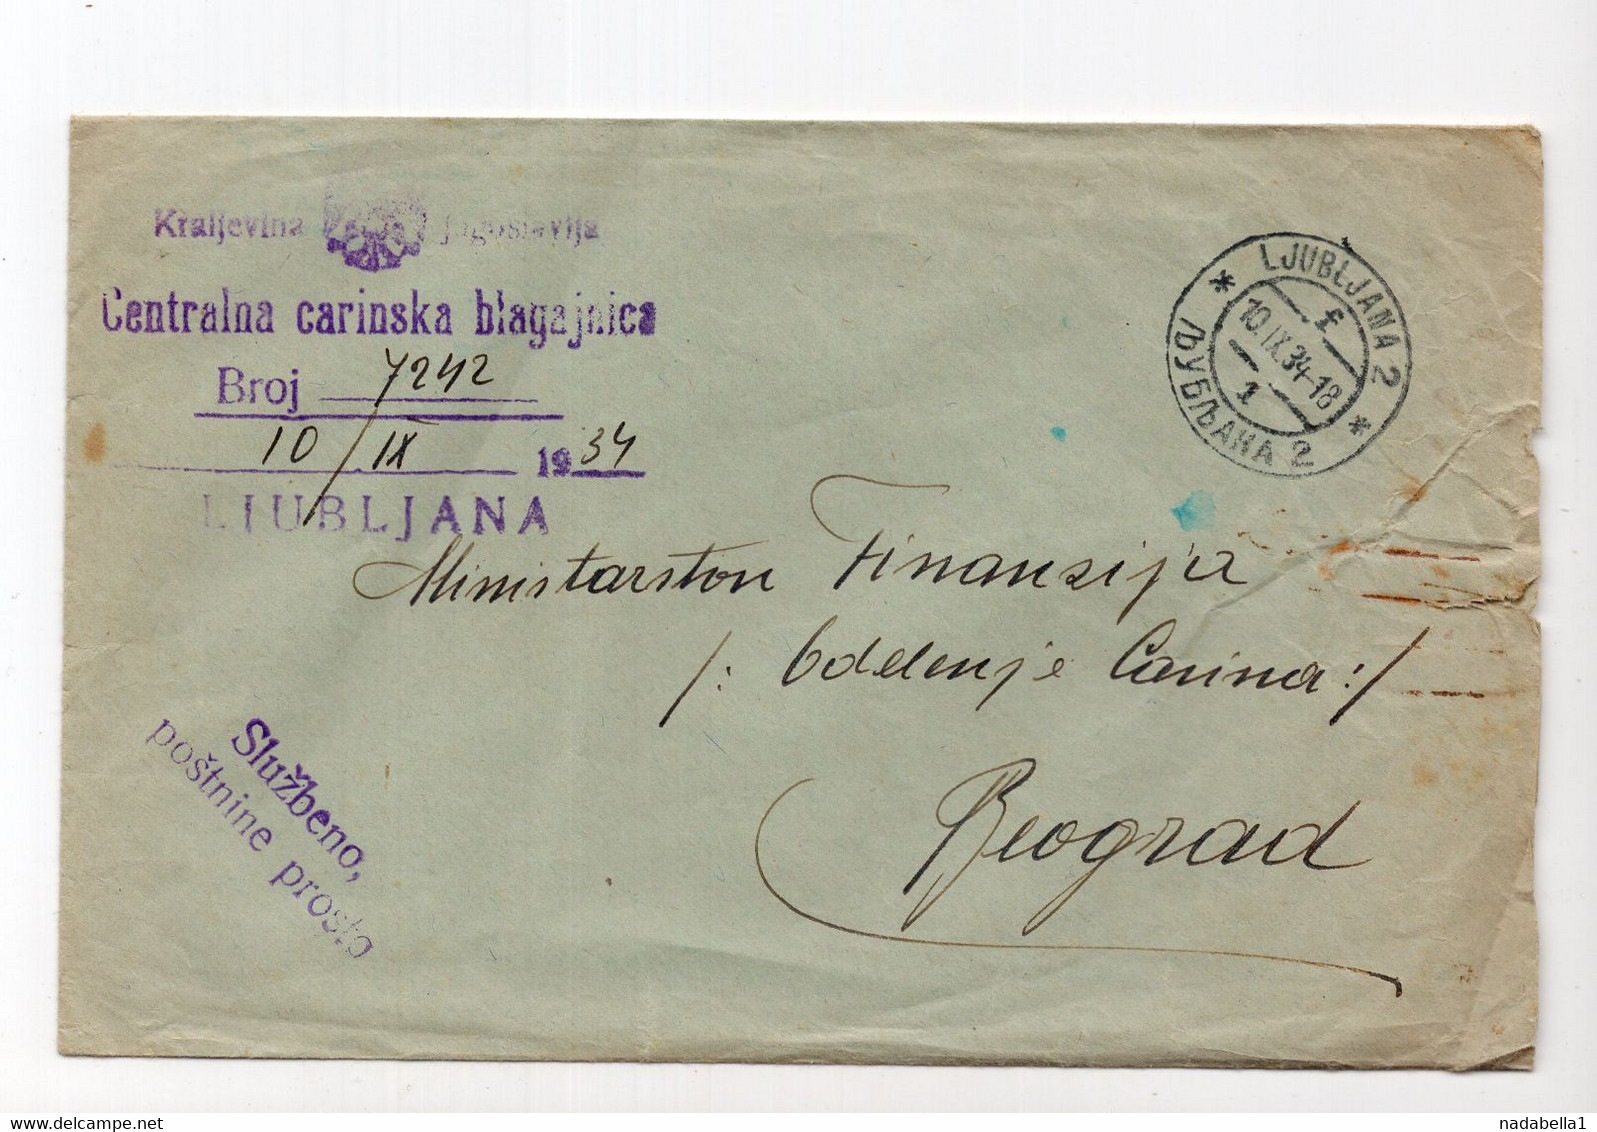 Kraljevina Jugoslavija
Centralna carinska blagajnica
Broj 7242
10/IX 1934
LJUBLJANA
LJUBLJANA 2
10.IX.34-18
ЉУБЉАНА 2
Ministarstvu Finansija
/: Oddelenje Carina :/
Beograd
Službeno,
poštnine prosto
nadabella1